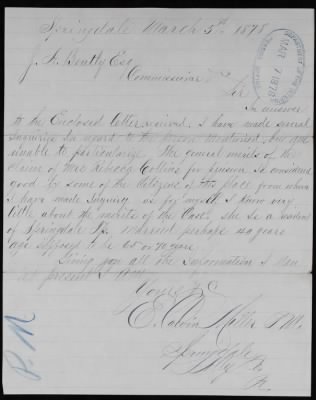 Springdale March 5th, 1878
J. A. Bently Esq
Commissioner
MAR 7 1878
Sir
In answer
to the Enclosed letter received, I have made several
Inquirys in regard to the person mentioned, but am
unable to particularize. The general merits of the
Claim of Mrs Rebecca Collins for pension is considered
good by some of the Citizens of this place from whom
I have made Inquiry as for myself I know very
little about the merits of the Case, she is a resident
of Springdale Pa. married perhaps 40 years
age suppose to be 65 or 70 years.
Giving you all the Information I can
at present I am
Yours &c
E. Calvin Miller P.M.
Springdale
Pa
P. M